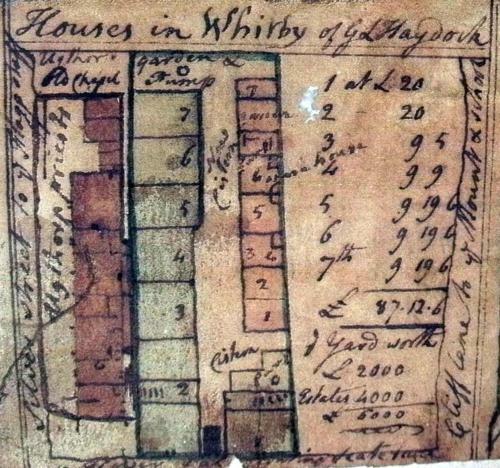 Houses in Whitby of Gd Haydock
Ugthor
Rd Chapel
garden &
Pump
7
6
5
4
3
2
7
garden
6
5
3 4
2
1
Cistern
house
Cistern
1 at £ 20
2 - 20
3 9 5
4 9 9
5 9 19 6
6 9 19 6
7th 9 19 6
£ 87.12.6
Yard worth
£ 2000
Estates 4000
£ 6000
Ugthorp priest
Silver Street to
Cliff Lane to ye Mount & school